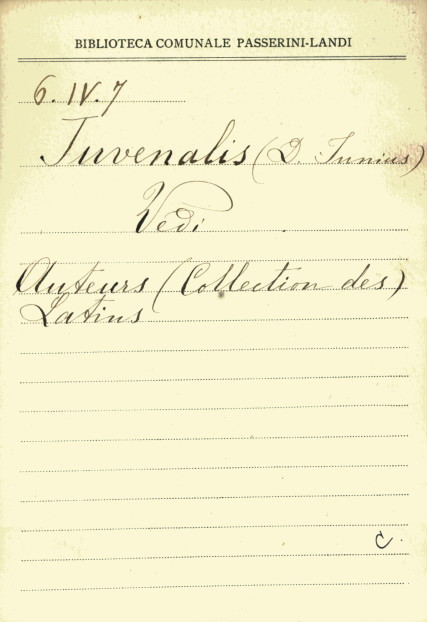 BIBLIOTECA COMUNALE PASSERINI-LANDI
6. IV. 7
Juvenalis (D. Junius)
Vedi
Auteurs (Collection des)
Latins
C.